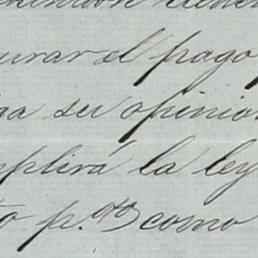 urar el pago
ga su opinion
mplirá la ley
to p.
como